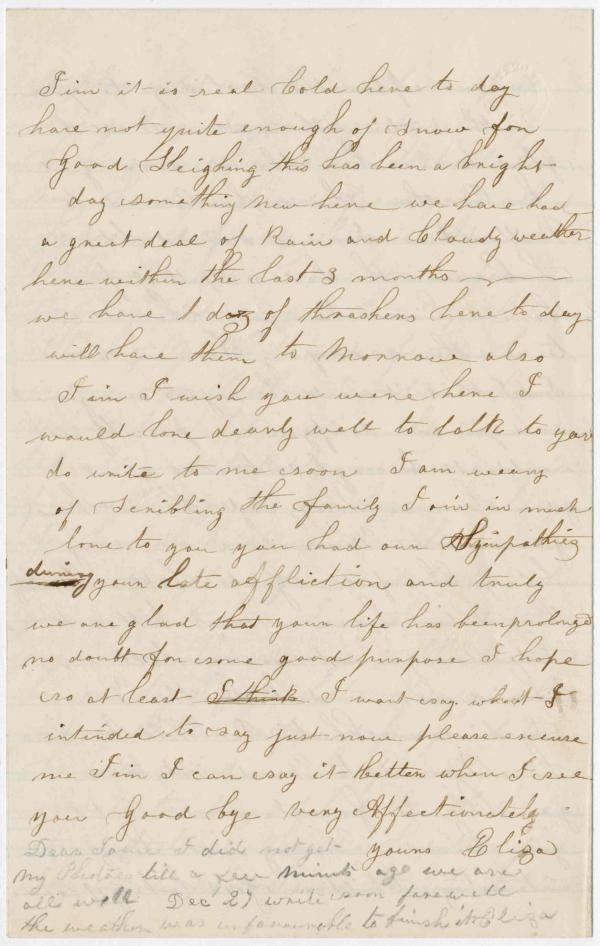 Tim it is real Cold here to day
have not quite enough of Snow for
Good Sleighing this has been a bright
day something new here we have had
a great deal of Rain and Cloudy weather
here within the last 3 months
we have 1 day of thrashers here to day
will have them to Morrowe also
Tim I wish you were here I
would love dearly well to talk to you
do write to me soon I am weary
of Scribling the family Join in much
love to you you had our Sympathies
during your late affliction and truly
we are glad that your life has been prolonged
no doubt for some good purpose I hope
so at least I think I wont say what I
intinded to say just now please excuse
me Tim I can say it better when I see
you Good bye very Affectionately
yours Eliza
Dear I did not get
my till a few minuts ago we are
all well Dec 27 write soon farewell
the weather was unfavourable to finish it Eliza